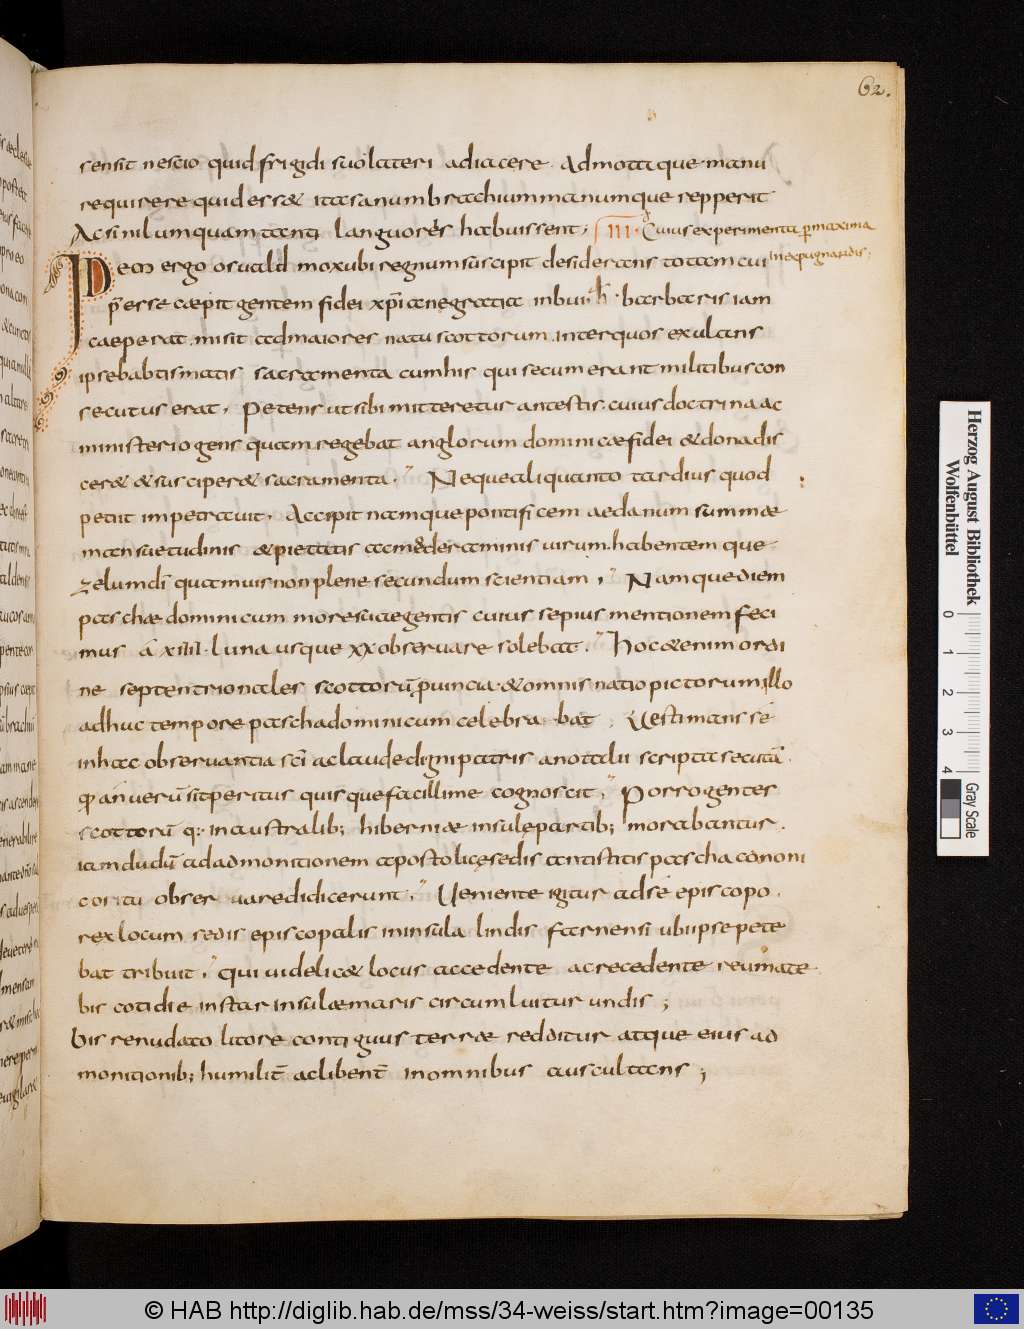 62.
sensit nescio quid frigidi suo lateri adiacere. Admotaque manu
requirere quid ess& ita sanum brachium manumque repperit
Ac si nil umquam tanti languoris habuissent; III. Cuius experimenta p̄ maxima
Idem ergo osuuald mox ubi regnum suscipit desiderans totam cui in expugnandis;
p̄esse cæpit gentem fidei xp̄ianę gratia inbui .h. barbaris iam
caeperat. misit ad maiores natu scottorum. inter quos exulans
ipse babtismatis sacramenta cum his qui secum erant militibus con
secutus erat. Petens ut sibi mitteretur antestis. cuius doctrina ac
ministerio gens quam regebat anglorum dominicæ fidei & dona dis
cer& & susciper& sacramenta. Neque aliquanto tardius quod
petiit impetrauit. Accipit namque pontificem aedanum summae
mansuetudinis & pietatis ac moderaminis uirum. habentem que
zelum dī quamuis non plene secundum scientiam. Namque diem
paschae dominicum more suae gentis cuius sepius mentionem feci
mus a xiiii. luna usque xx obseruare solebat. Hoc & enim ordi
ne septentrionales scottorū puincia. & omnis natio pictorum illo
adhuc tempore pascha dominicum celebrabat. Uestimans sé
in hac obseruantia scī ac laude digni patris anotalii scripta secutā.
qđ an uerū sit peritus quisque facillime cognoscit. Porro gentes
scottorū q: in australib; hiberniae insulę partib; morabantur.
iamdudū ad admonitionem apostolicę sedis antistitis pascha canoni
co ritu obseruare didicerunt. Ueniente igitur ad se episcopo.
rex locum sedis episcopalis in insula lindis farnensi ubi ipse pete
bat tribuit. qui uidelic& locus accedente ac recedente reumate
bis cotidie instar insulae maris circumluitur undis;
bis renudato litore contiguus terrae redditur atque eius ad
monitionib; humilit̄ ac libent̄ in omnibus auscultans;
Herzog August Bibliothek
Wolfenbüttel
0 1 2 3 4
Gray Scale
© HAB http://diglib.hab.de/mss/34-weiss/start.htm?image=00135